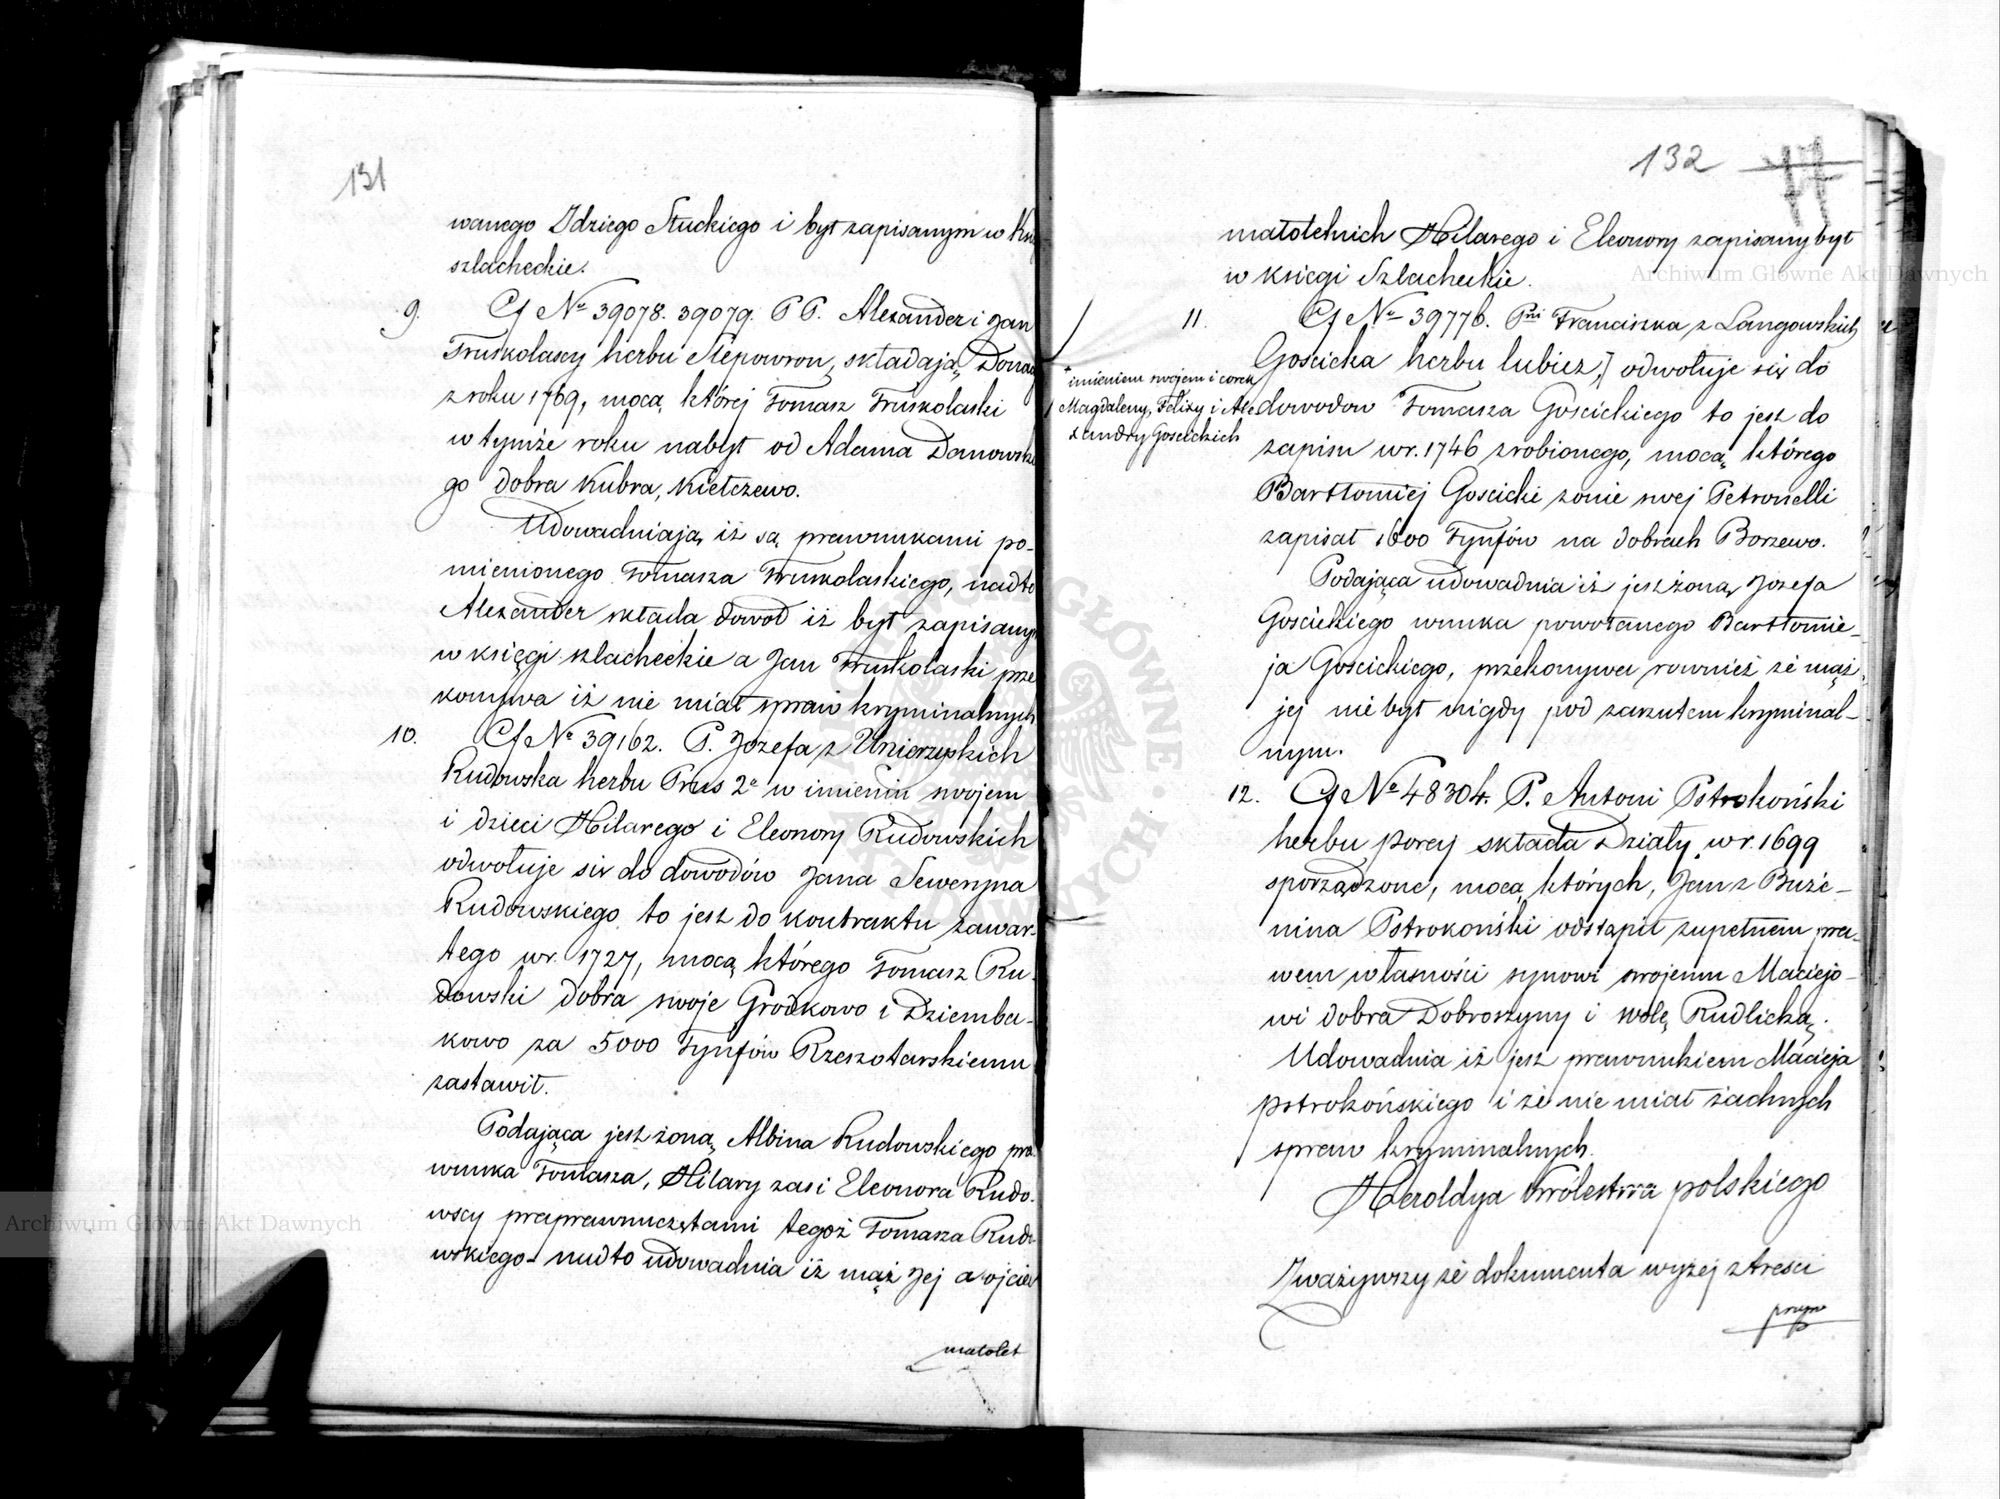 131
wanego Idziego Stuckiego i był zapisanym w
szlacheckie.
9. Cf No 39078. 39079. PP. Alexander i Jan
Truskolascy herbu Slepowron, składają
z roku 1769, mocą której Tomasz Truskolaski
w tymże roku nabył od Adama Danowskie
go dobra Kubra, Kiełczewo.
Udowadniają iż są prawnukami po-
mienionego Tomasza Truskolaskiego, nadto
Alexander składa dowod iż był zapisany
w księgi szlacheckie a Jan Truskolaski prze
konywa iż nie miał spraw kryminalnych
10. Cf No 39162. P. Jozefa z Unierzyskich
Rudowska herbu Prus 2o w imieniu swojem
i dzieci Hilarego i Eleonory Rudowskich
odwołuje się do dowodów Jana Seweryna
Rudowskiego to jest do kontraktu zawar-
tego w r. 1727, mocą którego Tomasz Ru-
dowski dobra swoje Grodkowo i Dziemba-
kowo za 5000 Tynfów Rzeszotarskiemu
zastawił.
Podająca jest żoną Albina Rudowskiego pra
wnuka Tomasza, Hilary zaś i Eleonora Rudo-
wscy praprawnuczętami tegoż Tomasza Rudo
wskiego - nadto udowadnia iż mąż Jej a ojciec
małolet
132
małoletnich Hilarego i Eleonory zapisany był
w księgi Szlacheckie.
11. Cf No 39776. Pni Franciszka z Langowskich
Gościcka herbu lubicz, odwołuje się do
* imieniem swojem i corek
Magdaleny, Felixy i Ale
xandry Gościckich
dowodow Tomasza Gościckiego to jest do
zapisu w r. 1746 zrobionego, mocą którego
Bartłomiej Gościcki żonie swej Petronelli
zapisał 1600 Tynfów na dobrach Borzewo.
Podająca udowadnia iż jest żoną Jozefa
Gościckiego wnuka powołanego Bartłomie-
ja Gościckiego, przekonywa rownież że mąż
jej nie był nigdy pod zarzutem kryminal-
nym.
12. Cf No 48304. P. Antoni Pstrokoński
herbu poray składa Działy w r. 1699
sporządzone, mocą których, Jan z Buże-
nina Pstrokoński odstąpił zupełnem pra-
wem własności synowi swojemu Maciejo-
wi dobra Dobroszyny i wolę Rudlicką.
Udowadnia iż jest prawnukiem Macieja
pstrokońskiego i że nie miał żadnych
spraw kryminalnych.
Heroldya Królestwa polskiego
Zważywszy że dokumenta wyżej z treści
przyw
Archiwum Główne Akt Dawnych
Archiwum Główne Akt Dawnych
ARCHIWUM GŁÓWNE AKT DAWNYCH